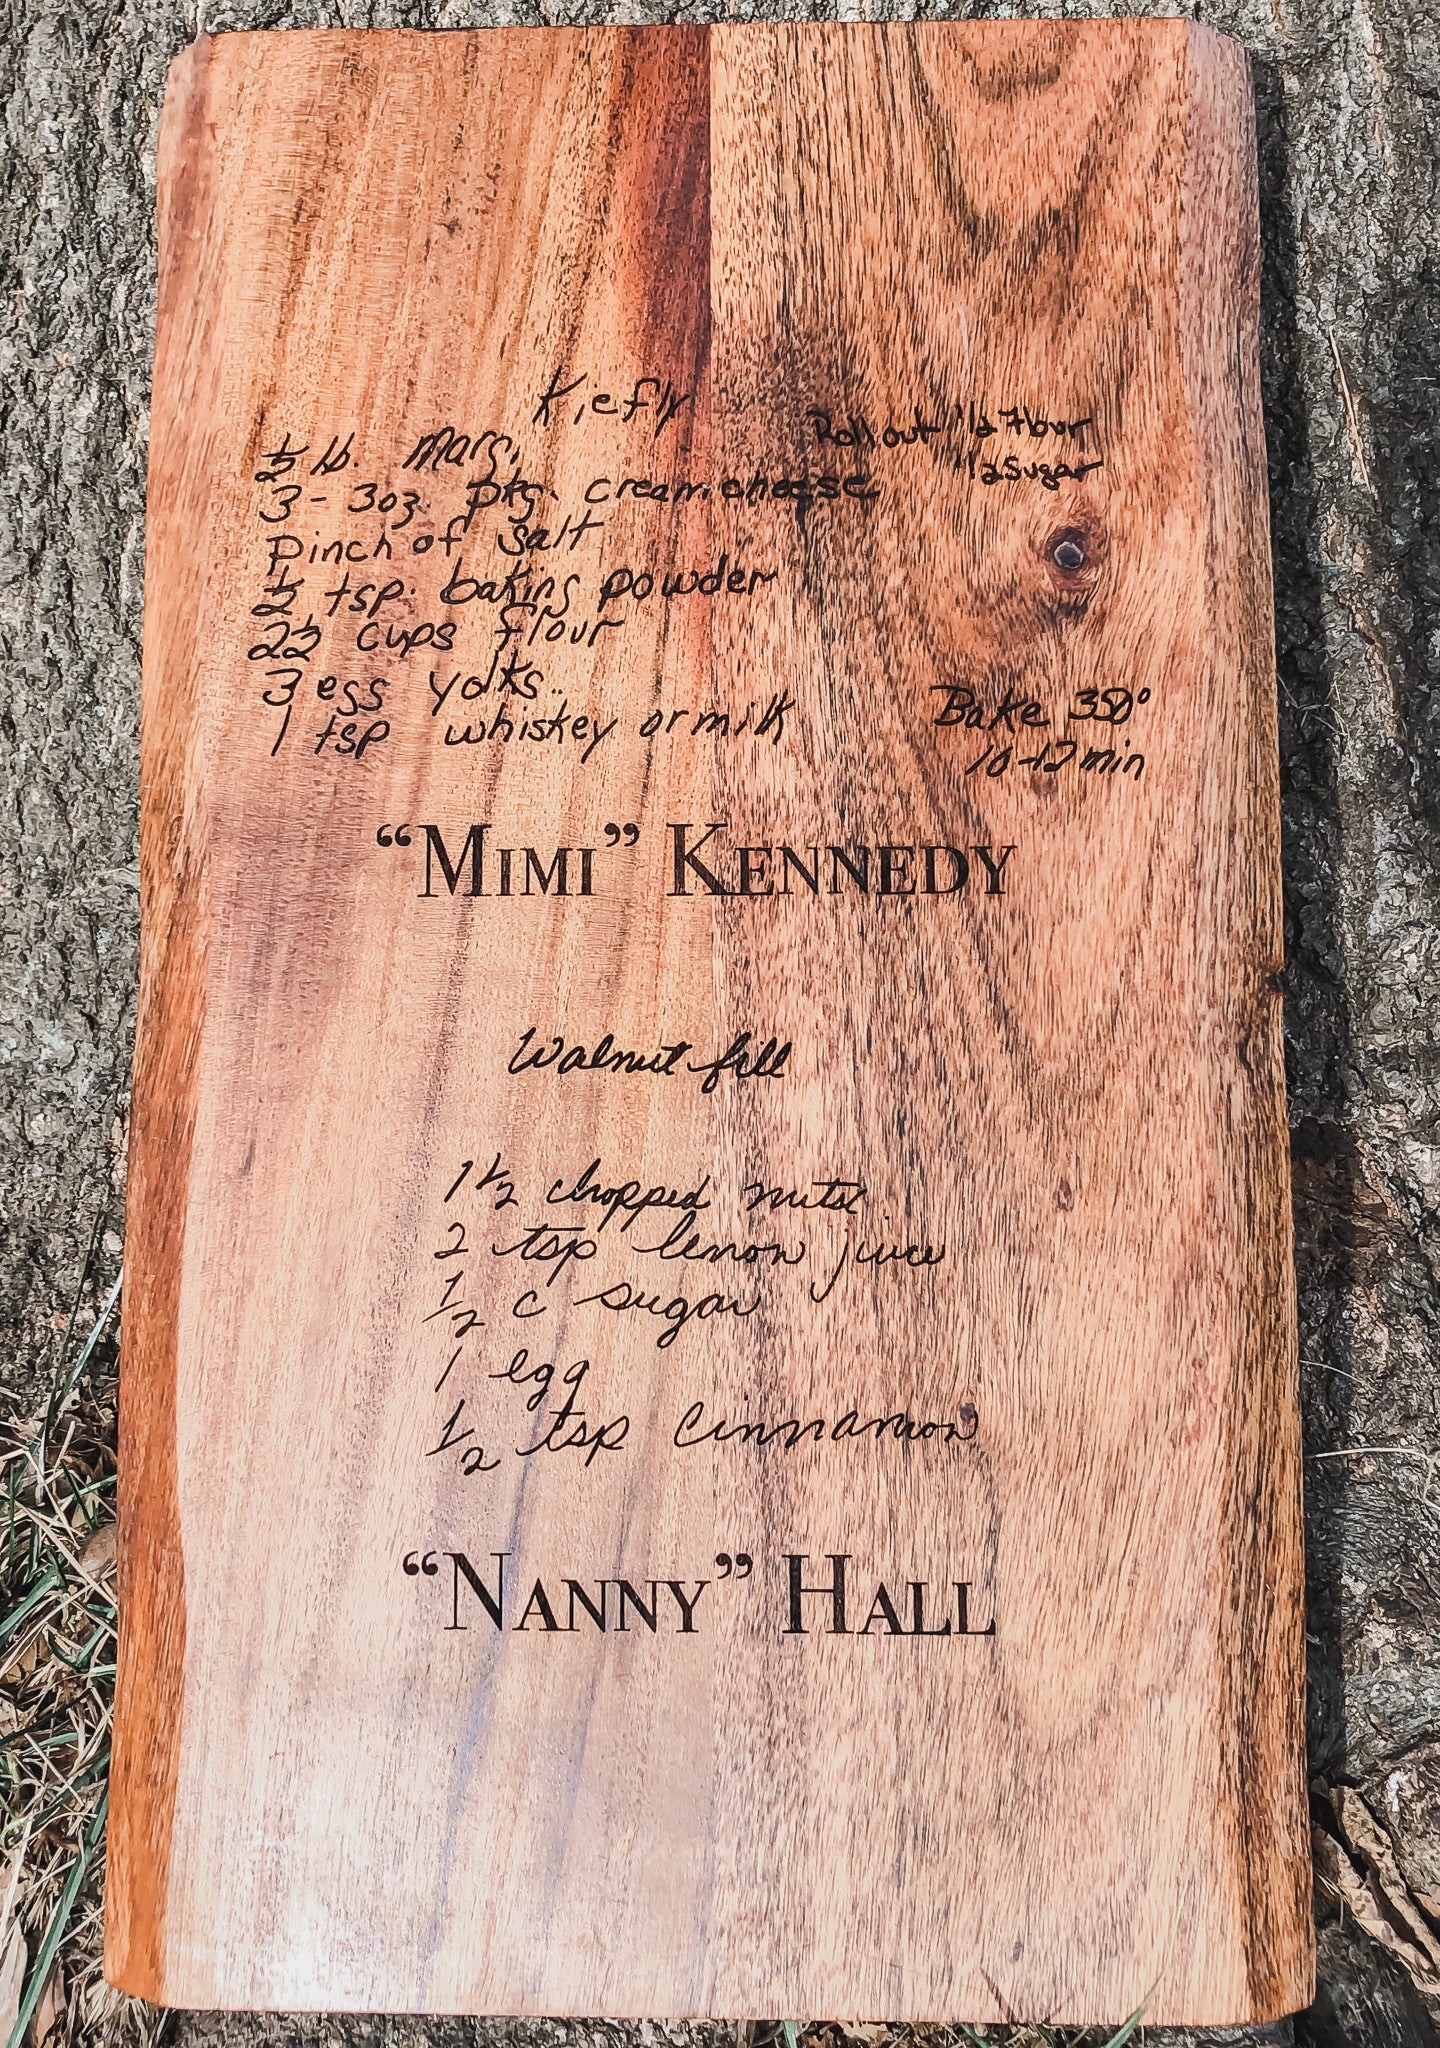 Kiefly
Roll out 1/2 Flour
1/2 Sugar
½ lb. Marg.
3 - 3oz. pkg. cream cheese
pinch of salt
½ tsp. baking powder
2½ cups flour
3 egg yolks.
1 tsp whiskey or milk
Bake 350°
10-12 min
“MIMI” KENNEDY
Walnut fill
1 1/2 chopped nuts
2 tsp lemon juice
1/2 c sugar
1 egg
1/2 tsp Cinnamon
“NANNY” HALL